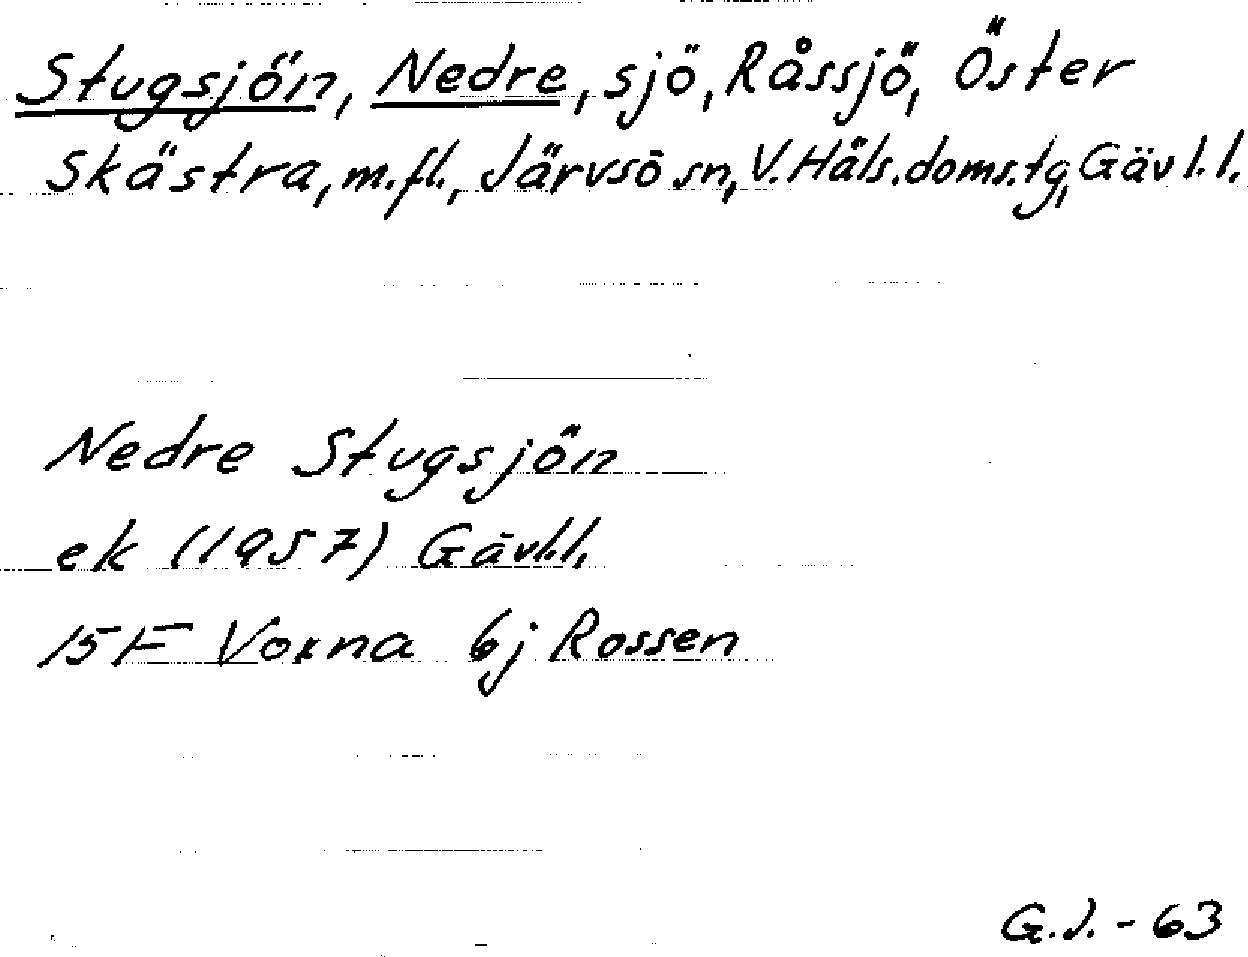 Stugsjön, Nedre, sjö, Råssjö, Öster
Skästra, m.fl., Järvsö sn, V. Häls. doms. tg, Gävl. l.
Nedre Stugsjön
ek (1957) Gävl. l.
15F Voxna 6j Rossen
G.J. - 63